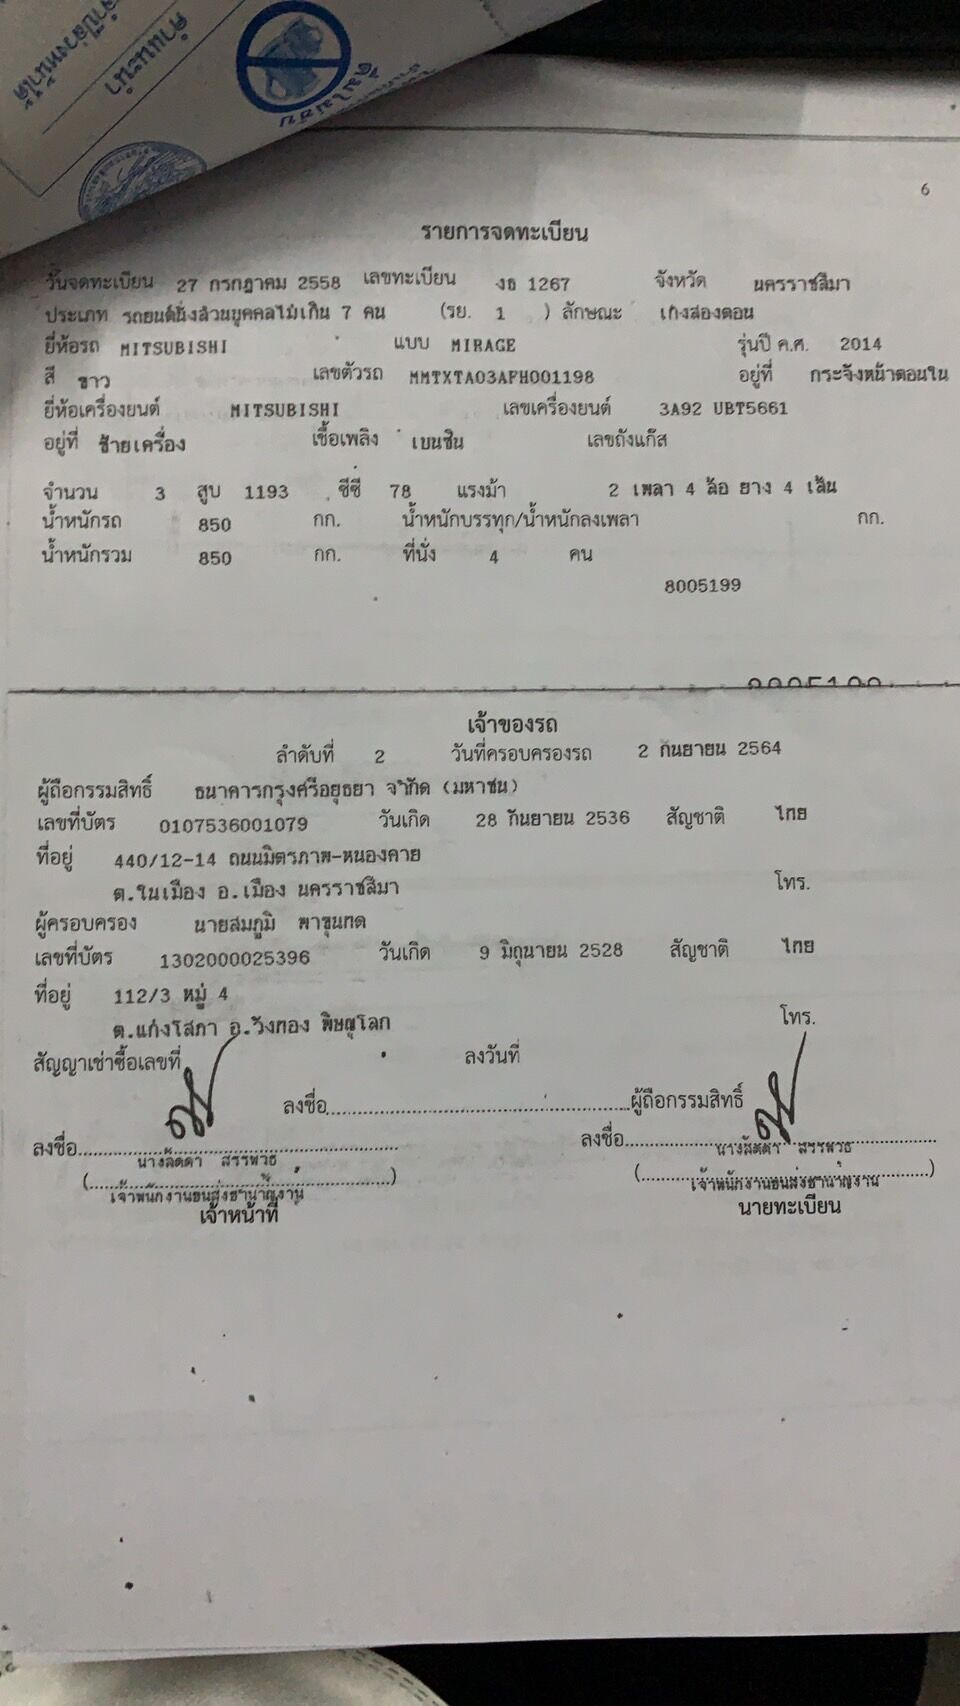 คำแนะนำ
ดื่มไม่ขับ
6
รายการจดทะเบียน
วันจดทะเบียน 27 กรกฎาคม 2558 เลขทะเบียน งธ 1267 จังหวัด นครราชสีมา
ประเภท รถยนต์นั่งส่วนบุคคลไม่เกิน 7 คน (รย. 1 ) ลักษณะ เก๋งสองตอน
ยี่ห้อรถ MITSUBISHI แบบ MIRAGE รุ่นปี ค.ศ. 2014
สี ขาว เลขตัวรถ MMTXTA03AFH001198 อยู่ที่ กระจังหน้าตอนใน
ยี่ห้อเครื่องยนต์ MITSUBISHI เลขเครื่องยนต์ 3A92 UBT5661
อยู่ที่ ซ้ายเครื่อง เชื้อเพลิง เบนซิน เลขถังแก๊ส
จำนวน 3 สูบ 1193 ซีซี 78 แรงม้า 2 เพลา 4 ล้อ ยาง 4 เส้น
น้ำหนักรถ 850 กก. น้ำหนักบรรทุก/น้ำหนักลงเพลา กก.
น้ำหนักรวม 850 กก. ที่นั่ง 4 คน
8005199
เจ้าของรถ
ลำดับที่ 2 วันที่ครอบครองรถ 2 กันยายน 2564
ผู้ถือกรรมสิทธิ์ ธนาคารกรุงศรีอยุธยา จำกัด (มหาชน)
เลขที่บัตร 0107536001079 วันเกิด 28 กันยายน 2536 สัญชาติ ไทย
ที่อยู่ 440/12-14 ถนนมิตรภาพ-หนองคาย
ต.ในเมือง อ.เมือง นครราชสีมา โทร.
ผู้ครอบครอง นายสมภูมิ พาขุนทด
เลขที่บัตร 1302000025396 วันเกิด 9 มิถุนายน 2528 สัญชาติ ไทย
ที่อยู่ 112/3 หมู่ 4
ต.แก่งโสภา อ.วังทอง พิษณุโลก โทร.
สัญญาเช่าซื้อเลขที่ ลงวันที่
ลงชื่อ ผู้ถือกรรมสิทธิ์
ลงชื่อ ลงชื่อ
นางลัดดา สรรพวุธ นางลัดดา สรรพวุธ
เจ้าพนักงานขนส่งชำนาญงาน เจ้าพนักงานขนส่งชำนาญงาน
เจ้าหน้าที่ นายทะเบียน